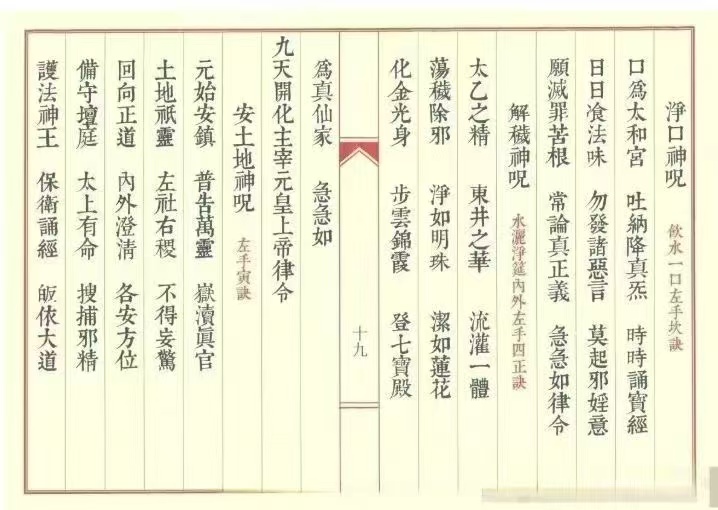 淨口神呪 飲水一口左手坎訣
口爲太和宮 吐納降真炁 時時誦寶經
日日飡法味 勿發諸惡言 莫起邪婬意
願滅罪苦根 常論真正義 急急如律令
解穢神呪 水灑淨筵內外左手四正訣
太乙之精 東井之華 流灌一體
蕩穢除邪 淨如明珠 潔如蓮花
化金光身 步雲錦霞 登七寶殿
十九
爲真仙家 急急如
九天開化主宰元皇上帝律令
安土地神呪 左手寅訣
元始安鎮 普告萬靈 嶽瀆眞官
土地祇靈 左社右稷 不得妄驚
回向正道 內外澄清 各安方位
備守壇庭 太上有命 搜捕邪精
護法神王 保衛誦經 皈依大道